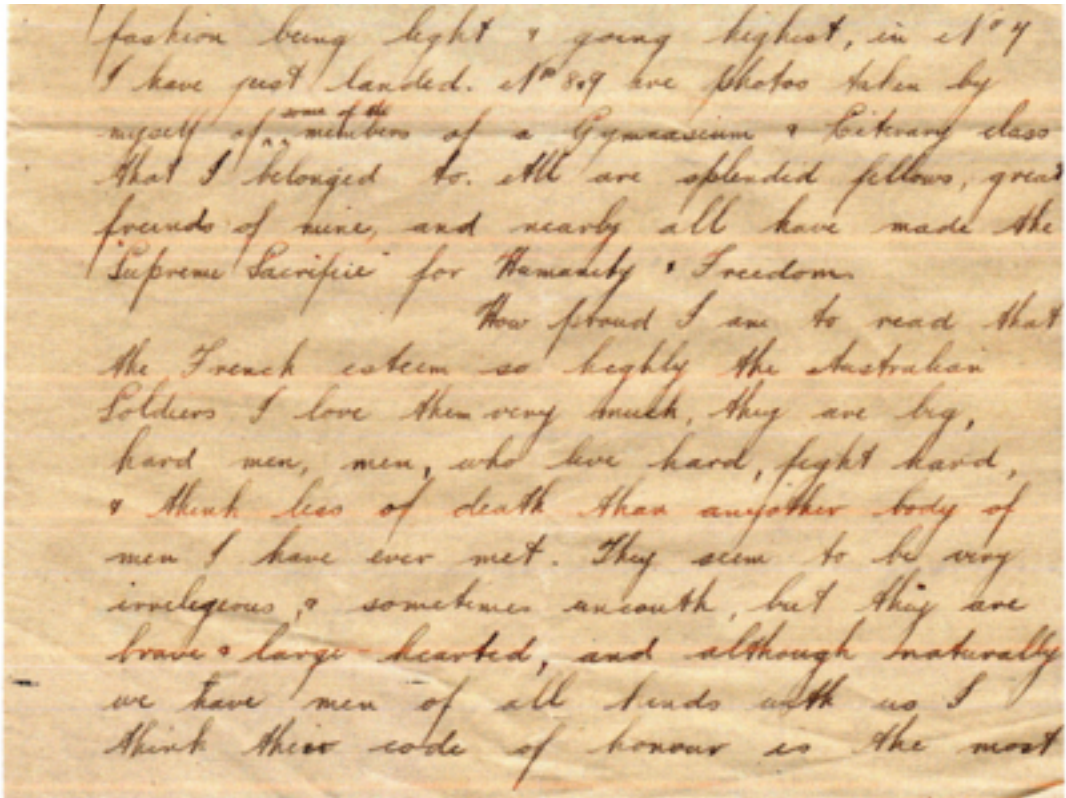 fashion being light & going highest, in No 7
I have just landed. No 8&9 are photos taken by
some of the
myself of members of a Gymnasium & Literary class
that I belonged to. All are splendid fellows, great
freinds of mine, and nearly all have made the
"Supreme Sacrifice" for Humanity & Freedom.
How proud I am to read that
the French esteem so highly the Australian
Soldiers I love them very much, they are big,
hard men, men, who live hard, fight hard,
& think less of death than anyother body of
men I have ever met. They seem to be very
irreligeous, & sometimes uncouth, but they are
brave & large hearted, and although naturally
we have men of all kinds with us I
think their code of honour is the most